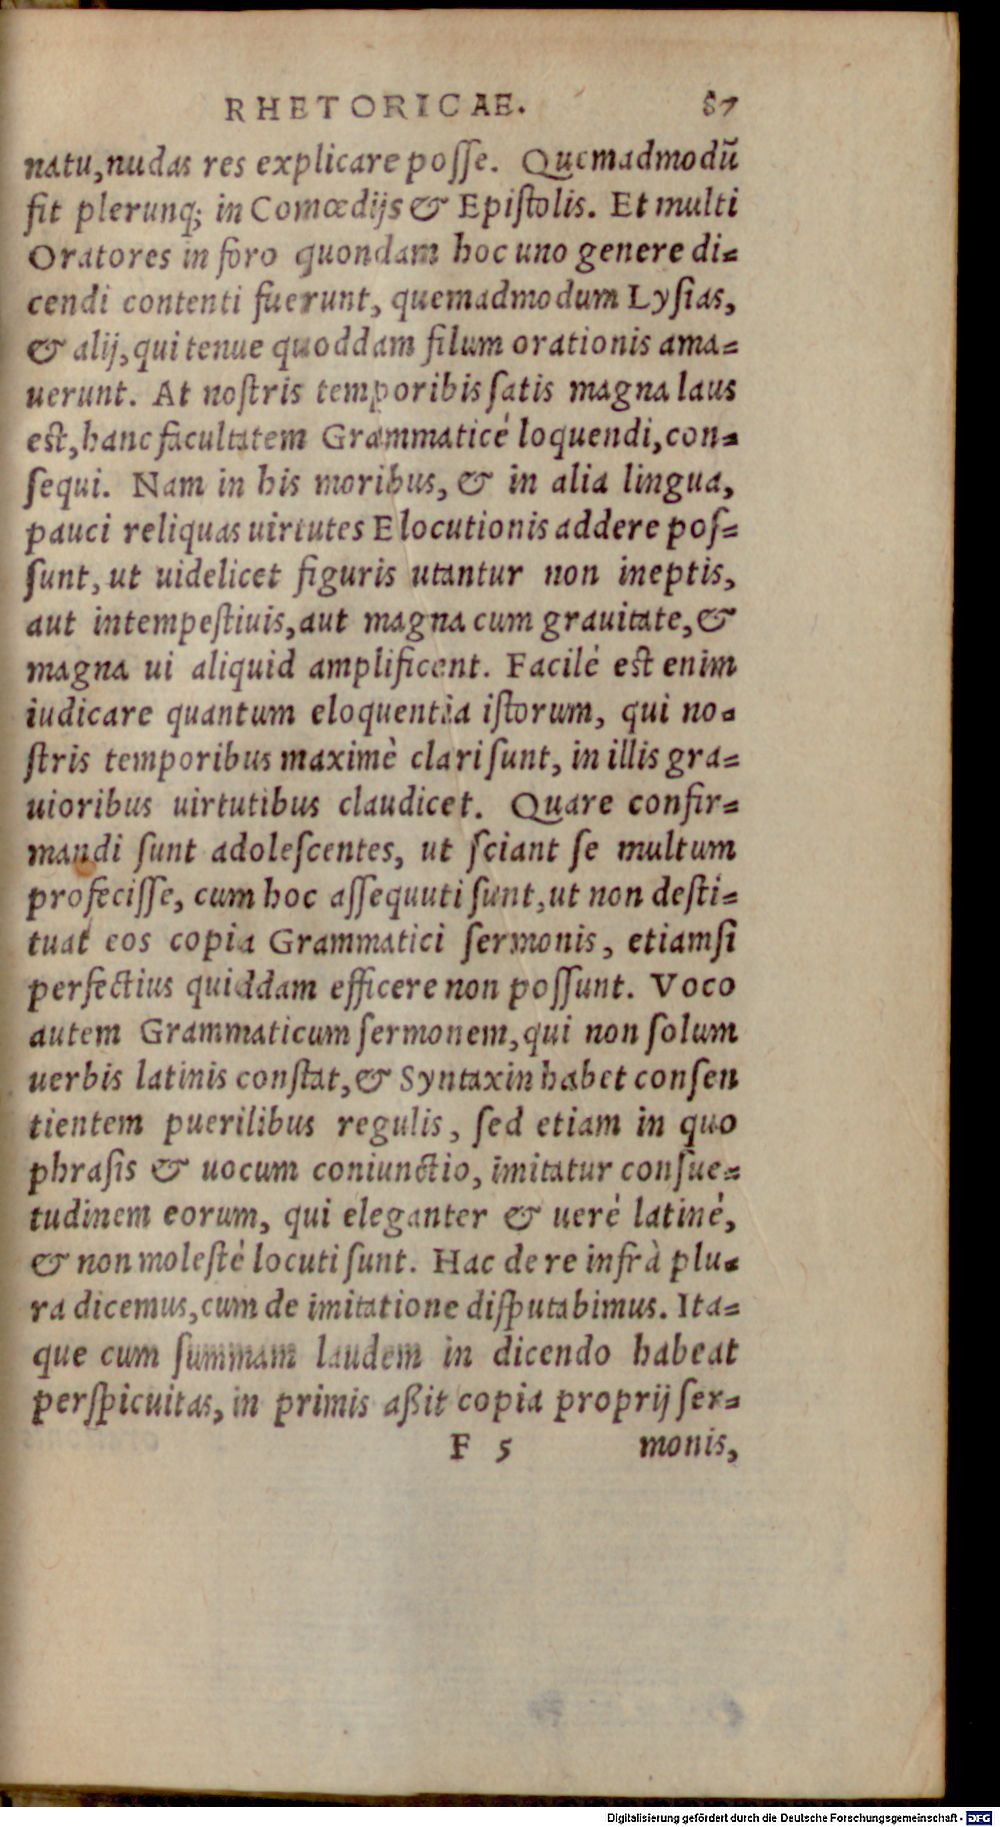 RHETORICAE. 87
natu, nudas res explicare posse. Quemadmodū
fit plerunq; in Comœdijs & Epistolis. Et multi
Oratores in foro quondam hoc uno genere di-
cendi contenti fuerunt, quemadmodum Lysias,
& alij, qui tenue quoddam filum orationis ama-
uerunt. At nostris temporibis satis magna laus
est, hanc facultatem Grammaticé loquendi, con-
sequi. Nam in his moribus, & in alia lingua,
pauci reliquas uirtutes Elocutionis addere pos-
sunt, ut uidelicet figuris utantur non ineptis,
aut intempestiuis, aut magna cum grauitate, &
magna ui aliquid amplificent. Facilé est enim
iudicare quantum eloquentia istorum, qui no-
stris temporibus maximè clari sunt, in illis gra-
uioribus uirtutibus claudicet. Quare confir-
mandi sunt adolescentes, ut sciant se multum
profecisse, cum hoc assequuti sunt, ut non desti-
tuat eos copia Grammatici sermonis, etiamsi
perfectius quiddam efficere non possunt. Voco
autem Grammaticum sermonem, qui non solum
uerbis latinis constat, & Syntaxin habet consen
tientem puerilibus regulis, sed etiam in quo
phrasis & uocum coniunctio, imitatur consue-
tudinem eorum, qui eleganter & ueré latiné,
& non molesté locuti sunt. Hac de re infrà plu-
ra dicemus, cum de imitatione disputabimus. Ita-
que cum summam laudem in dicendo habeat
perspicuitas, in primis aßit copia proprij ser-
F 5 monis,
Digitalisierung gefördert durch die Deutsche Forschungsgemeinschaft - DFG